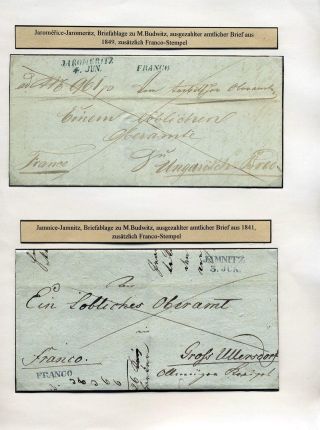 Jaroměřice-Jaromeritz, Briefablage zu M.Budwitz, ausgezahlter amtlicher Brief aus
1849, zusätzlich Franco-Stempel
JAROMERITZ
4. JUN.
FRANCO
Einem löblichen
Oberamte
zu
Franco
Ungarisch
Jamnice-Jamnitz, Briefablage zu M.Budwitz, ausgezahlter amtlicher Brief aus 1841,
zusätzlich Franco-Stempel
JAMNITZ
5. JUN.
An
Ein Löbliches Oberamt
Franco.
Groß Ullersdorf
FRANCO